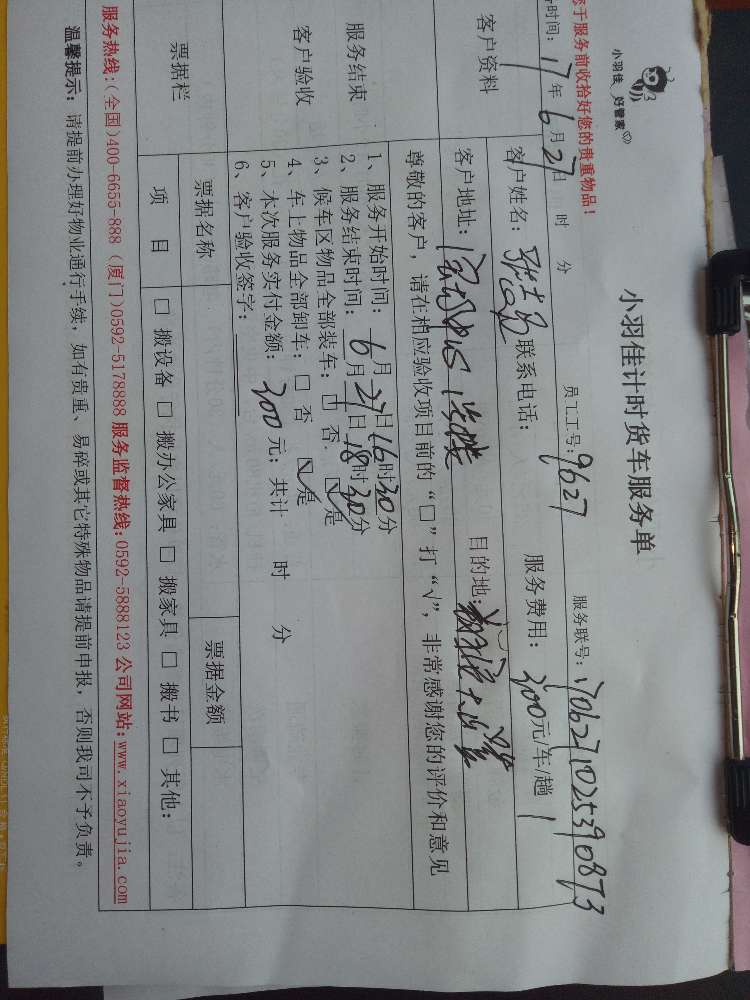 小羽佳 好管家
小羽佳计时货车服务单
您于服务前收拾好您的贵重物品！
员工工号：9627
服务联号：1706271025390873
时间：17年6月27日 时 分
客户资料
客户姓名：
联系电话：
服务费用：300元/车/趟 1
客户地址：
目的地：
服务结束
客户验收
尊敬的客户，请在相应验收项目前的“□”打“√”，非常感谢您的评价和意见
1、服务开始时间：6月27日16时30分
2、服务结束时间：6月27日18时30分
3、候车区物品全部装车：□否 ☑是
4、车上物品全部卸车：□否 ☑是
5、本次服务实付金额：300元；共计 时 分
6、客户验收签字：
票据栏
票据名称
票据金额
项目
□ 搬设备 □ 搬办公家具 □ 搬家具 □ 搬书 □ 其他：
服务热线：(全国)400-6655-888 (厦门)0592-5178888 服务监督热线：0592-5888123 公司网站：www.xiaoyujia.com
温馨提示：请提前办理好物业通行手续，如有贵重、易碎或其它特殊物品请提前申报，否则我司不予负责。